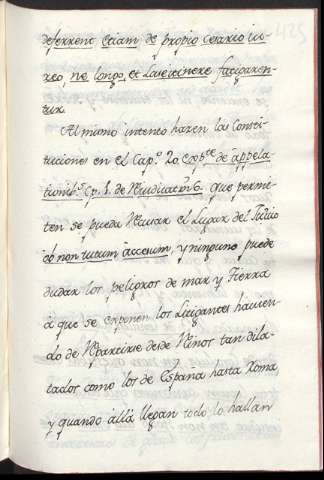 deferrent etiam de propio erario iu-
reo, ne longo, et
fatigaren-
tur.
Al mismo intento hazen las Consti-
tuciones en el Cap.º 20 de appela-
tionib.s Cp. 1. de que permi-
ten se pueda recusar el Lugar del Juicio
ob non tutum accessum, y ninguno puede
dudar los peligros de mar y Tierra
à que se exponen los Litigantes havien-
do de desde Reinos tan dila-
tados como los de España hasta Roma
y quando allà llegan todo lo hallan